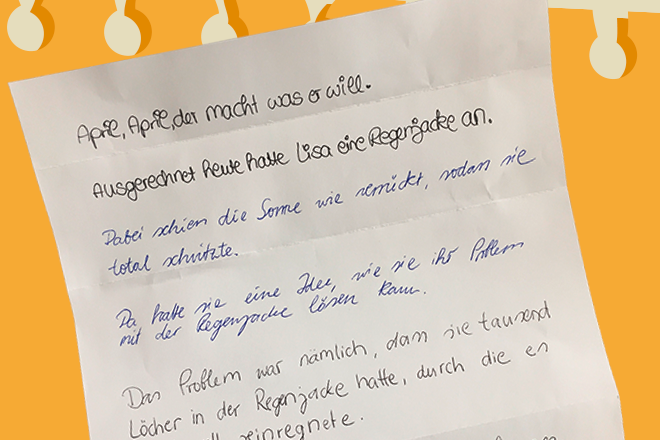 April, April, der macht was er will.
Ausgerechnet heute hatte Lisa eine Regenjacke an.
Dabei schien die Sonne wie verrückt, sodass sie
total schwitzte.
Da hatte sie eine Idee, wie sie ihr Problem
mit der Regenjacke lösen kann.
Das Problem war nämlich, dass sie tausend
Löcher in der Regenjacke hatte, durch die es
reinregnete.